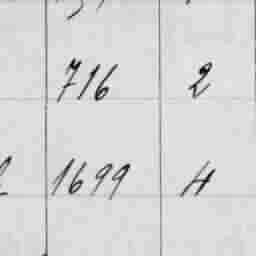 716 2
1699 4